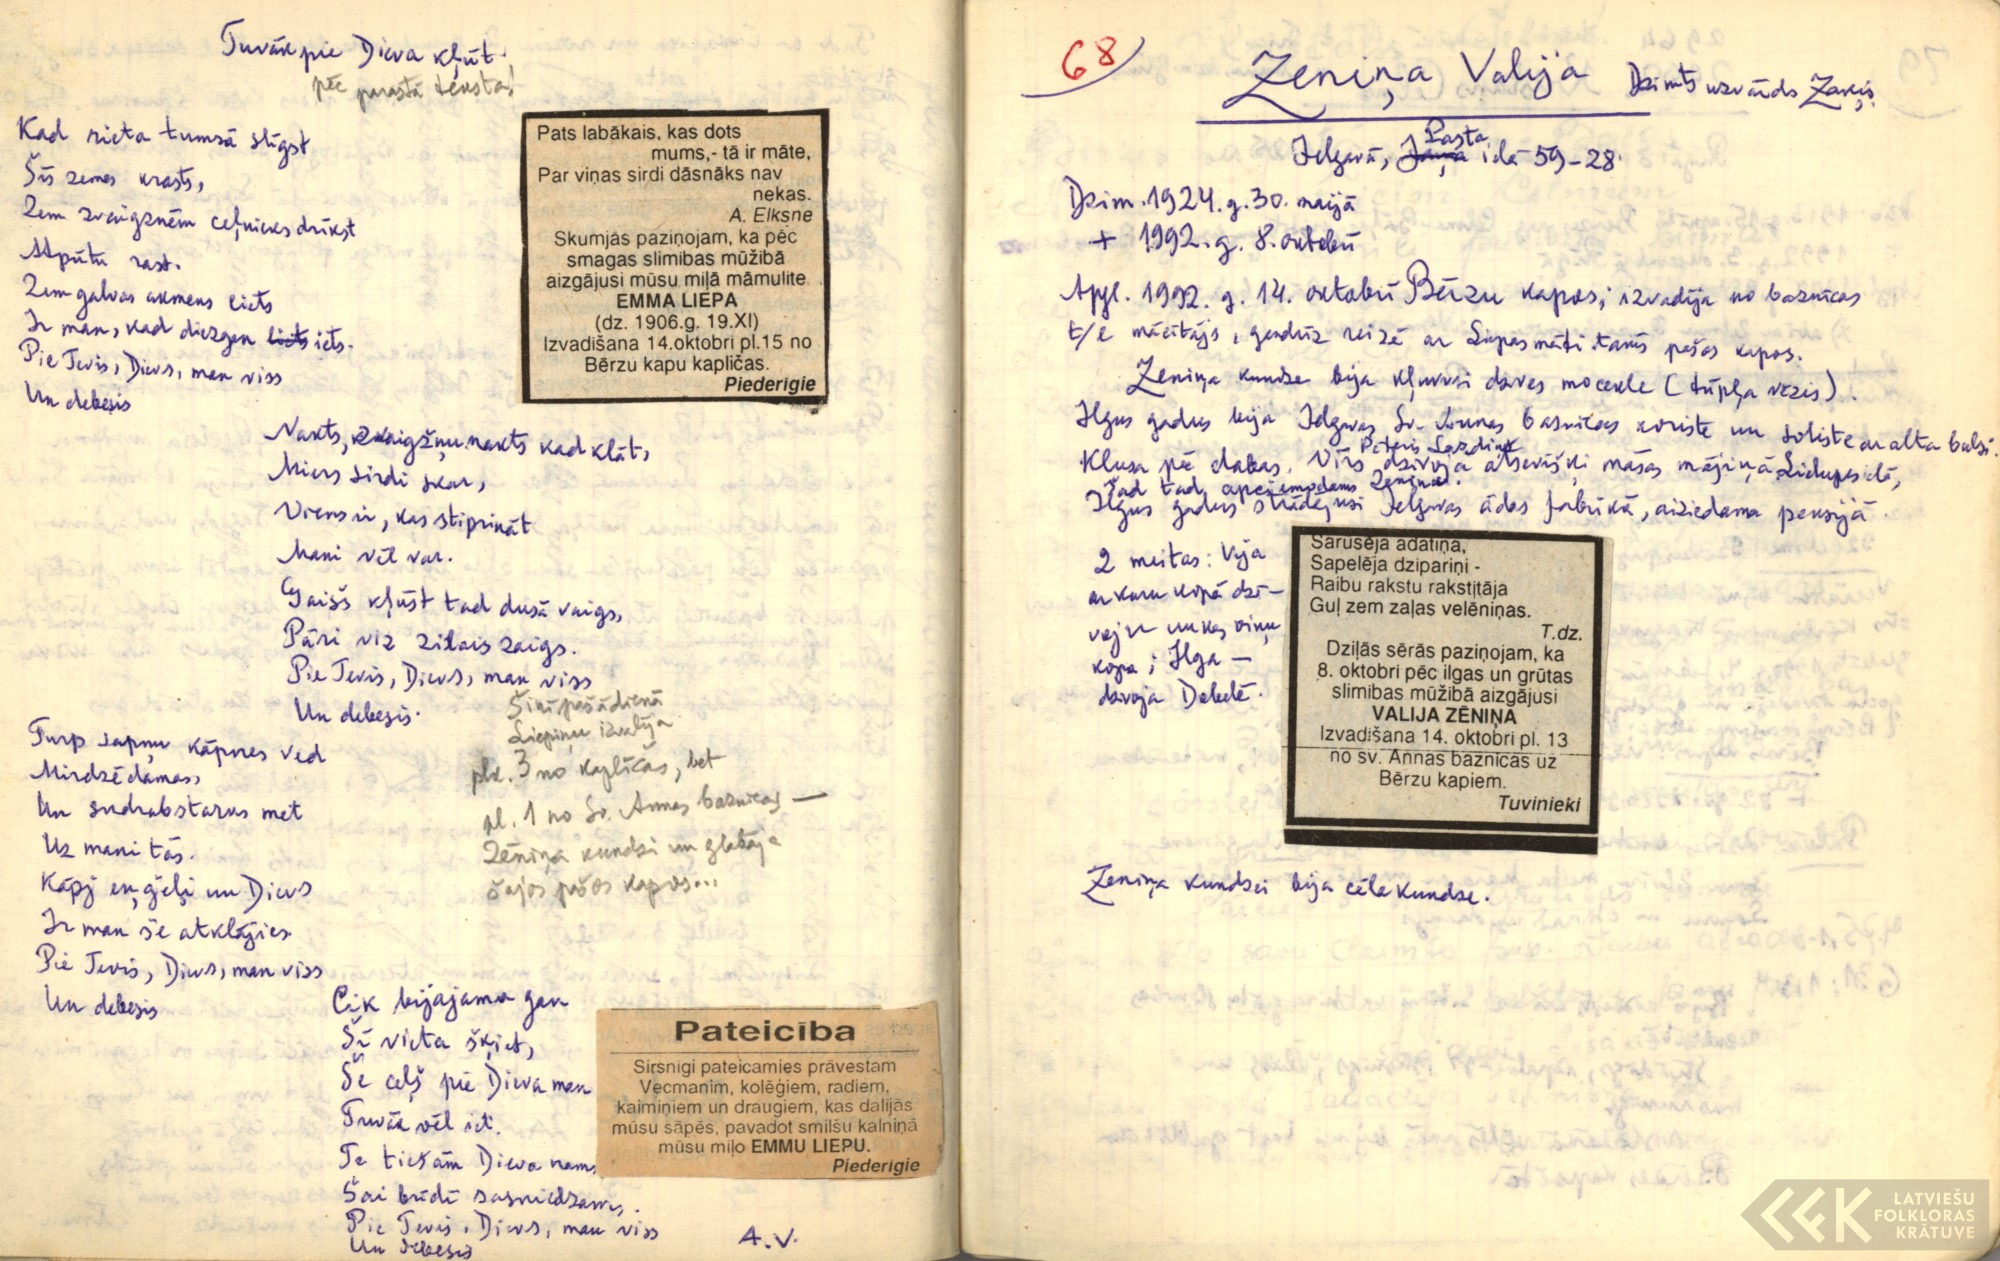 Tuvāk pie Dieva kļūt.
pēc parastā teksta!
Kad rieta tumsā slīgst
Šīs zemes krasts,
Zem zvaigznēm ceļnieks drīkst
Atpūtu rast.
Zem galvas akmens liets
Ir man, kad diezgan iets.
Pie Tevis, Dievs, man viss
Un debesis
Pats labākais, kas dots
mums,- tā ir māte,
Par viņas sirdi dāsnāks nav
nekas.
A. Elksne
Skumjās paziņojam, ka pēc
smagas slimības mūžībā
aizgājusi mūsu mīļā māmulīte
EMMA LIEPA
(dz. 1906.g. 19.XI)
Izvadīšana 14.oktobrī pl.15 no
Bērzu kapu kapličas.
Piederīgie
Nakts, zvaigžņu nakts kad klāt,
Miers sirdi skar,
Viens ir, kas stiprināt
Mani vēl var.
Gaišs kļūst tad dusā vaigs,
Pāri viz zilais zaigs.
Pie Tevis, Dievs, man viss
Un debesis.
Šinī pašā dienā
Liepiņu izvadīja
plk. 3 no kapličas, bet
pl. 1 no Sv. Annas baznīcas —
Zēniņa kundzi un glabāja
šajos pašos kapos...
Turp sapņu kāpnes ved
Mirdzēdamas,
Un sudrabstarus met
Uz mani tās.
Kāpj eņģeļi un Dievs
Ir man še atklājies
Pie Tevis, Dievs, man viss
Un debesis
Cik bijājama gan
Šī vieta šķiet,
Še ceļš pie Dieva man
Tuvāk vēl iet.
Te tiešām Dieva nams
Šai brīdī sasniedzams.
Pie Tevis, Dievs, man viss
Un debesis
A.V.
Pateicība
Sirsnīgi pateicamies prāvestam
Vecmanim, kolēģiem, radiem,
kaimiņiem un draugiem, kas dalījās
mūsu sāpēs, pavadot smilšu kalniņā
mūsu mīļo EMMU LIEPU.
Piederīgie
68
Zeniņa Valija Dzimts uzvārds Zaķis
Jelgavā, Pasta ielā 59-28.
Dzim. 1924. g. 30. maijā
+ 1992. g. 8. oktobrī
Apgl. 1992. g. 14. oktobrī Bērzu kapos; izvadīja no baznīcas
t/c mācītājs, gandrīz reizē ar Liepas māti tanīs pašos kapos.
Zeniņa kundze bija kļuvusi dzīves mocekle (tūpļa vēzis).
Ilgus gadus bija Jelgavas Sv. Annas baznīcas koriste un soliste ar alta balsi.
Pēteris Lazdiņš
Klusa pēc dabas. Vīrs dzīvoja atsevišķi māsas mājiņā Lielupes ielā,
Šad tad apciemodams Zeniņu.
Ilgus gadus strādājusi Jelgavas ādas fabrikā, aiziedama pensijā
2 meitas: Vija
ar kuru kopā dzī-
voja un kas viņu
kopa; Ilga —
dzīvoja Dobelē.
Sarusēja adatiņa,
Sapelēja dzīpariņi -
Raibu rakstu rakstītāja
Guļ zem zaļas velēniņas.
T.dz.
Dziļās sērās paziņojam, ka
8. oktobrī pēc ilgas un grūtas
slimības mūžībā aizgājusi
VALIJA ZĒNIŅA
Izvadīšana 14. oktobrī pl. 13
no sv. Annas baznīcas uz
Bērzu kapiem.
Tuvinieki
Zeniņa kundze bija cēla kundze.
LATVIEŠU
FOLKLORAS
KRĀTUVE